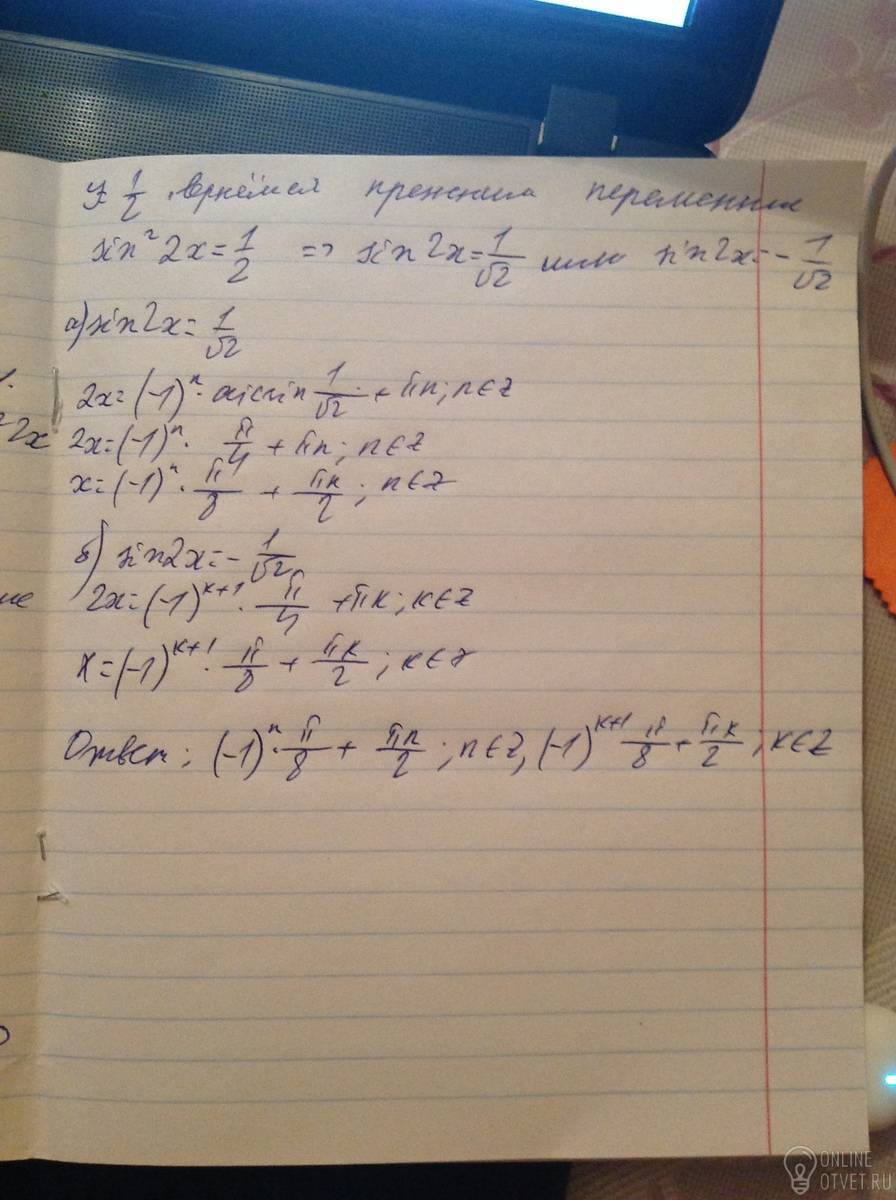 y=1/2 . вернёмся прежним переменным
sin² 2x = 1/2 => sin 2x = 1/√2 или sin 2x = - 1/√2
а) sin 2x = 1/√2
2x = (-1)ⁿ · arcsin 1/√2 + πn; n∈Z
2x
2x = (-1)ⁿ · π/4 + πn; n∈Z
x = (-1)ⁿ · π/8 + πn/2; n∈Z
б) sin 2x = - 1/√2
2x = (-1)ᵏ⁺¹ · π/4 + πk; k∈Z
x = (-1)ᵏ⁺¹ · π/8 + πk/2; k∈Z
Ответ; (-1)ⁿ · π/8 + πn/2; n∈Z, (-1)ᵏ⁺¹ π/8 + πk/2; k∈Z
ONLINE
OTVET.RU